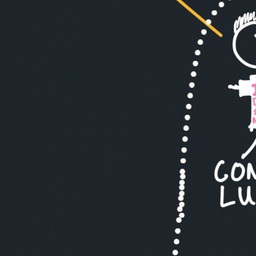 CON
LU